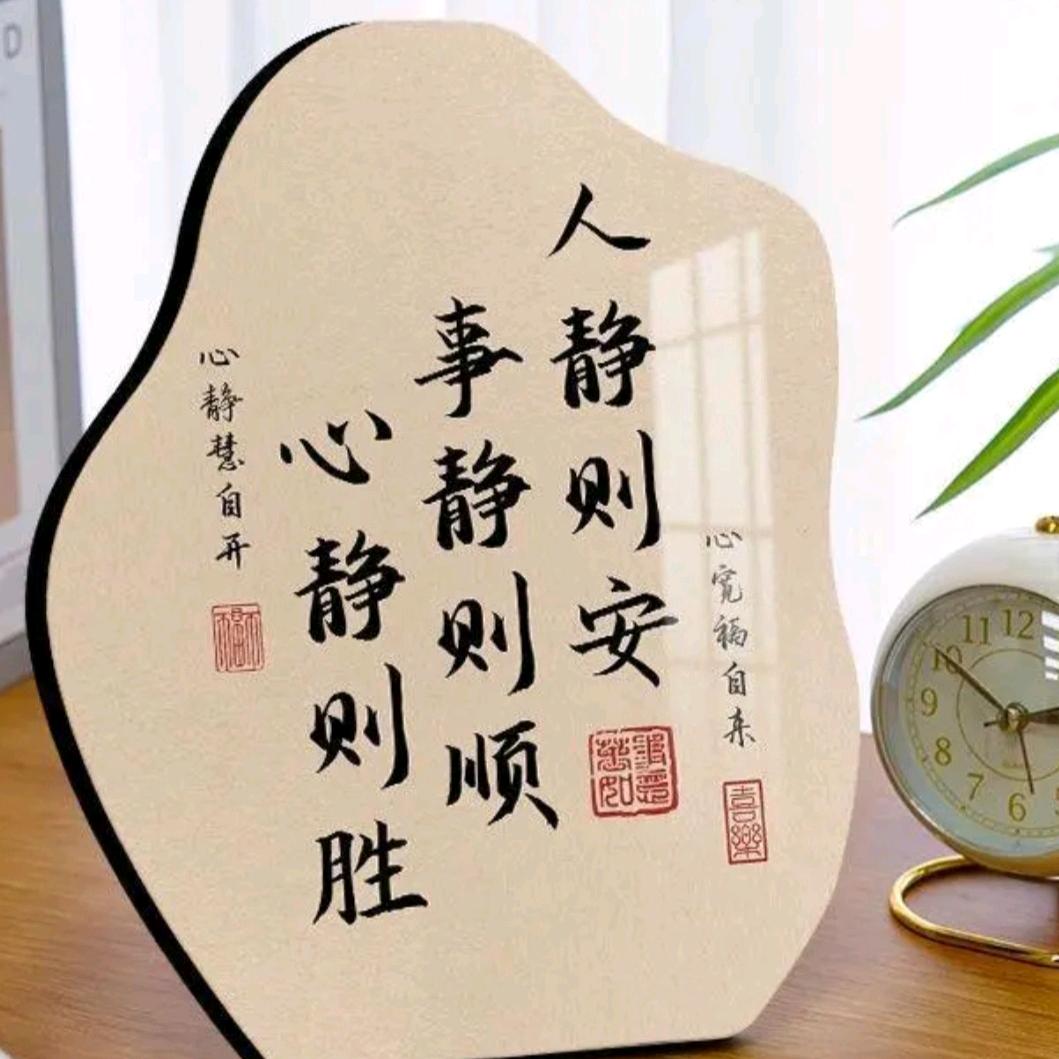 心宽福自来
喜樂
人静则安
事静则顺
心静则胜
心静慧自开
D
11 12
10
9
8
7
6